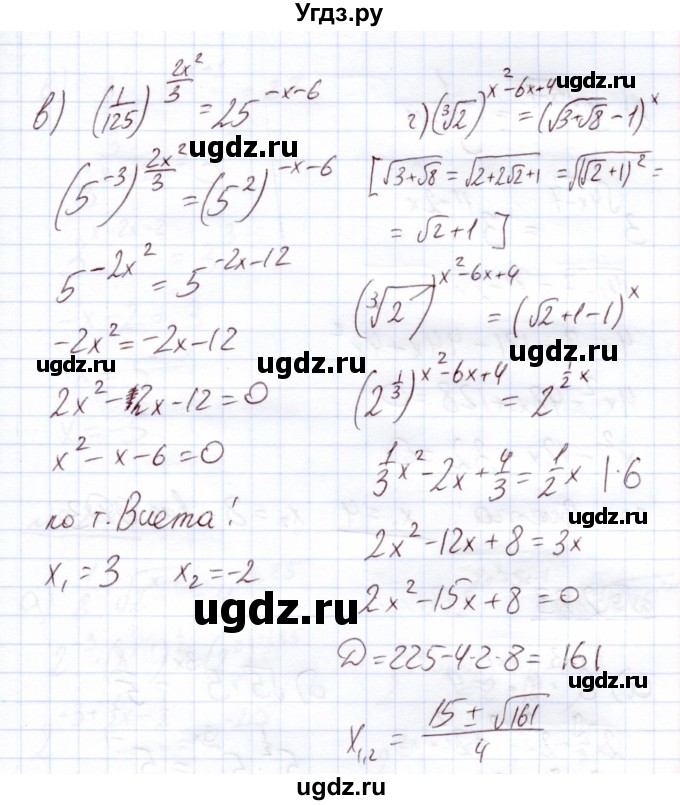 Угдз.ру
в) (1/125)^(2x²/3) = 25^(-x-6)
(5^(-3))^(2x²/3) = (5²)^(-x-6)
5^(-2x²) = 5^(-2x-12)
-2x² = -2x-12
2x² - 2x - 12 = 0
x² - x - 6 = 0
по т. Виета!
x₁ = 3 x₂ = -2
г) (∛2)^(x²-6x+4) = (√(3+√8) - 1)^x
[√(3+√8) = √(2+2√2+1) = √((√2+1)²) =
= √2+1]
(∛2)^(x²-6x+4) = (√2+1-1)^x
(2^(1/3))^(x²-6x+4) = 2^(1/2 x)
1/3 x² - 2x + 4/3 = 1/2 x | · 6
2x² - 12x + 8 = 3x
2x² - 15x + 8 = 0
Д = 225 - 4·2·8 = 161
x₁,₂ = (15 ± √161)/4
ugdz.ru
ugdz.ru
ugdz.ru
ugdz.ru
ugdz.ru
ugdz.ru
ugdz.ru
ugdz.ru
ugdz.ru
ugdz.ru